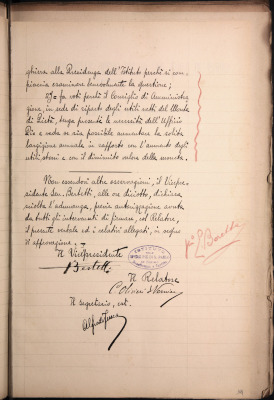 ghiera alla Presidenza dell'Istituto perchè si com-
piaccia esaminare benevolmente la questione;
2)= fa voti perchè il Consiglio di Amministra-
zione, in sede di riparto degli utili netti del Monte
di Pietà, tenga presenti le necessità dell'Ufficio
Pio e veda se sia possibile aumentare la solita
largizione annuale in rapporto con l'aumento degli
utili stessi e con il diminuito valore della moneta.
Non essendovi altre osservazioni, il Vicepre-
sidente Sen. Bertetti, alle ore diciotto, dichiara
sciolta l'adunanza, previa autorizzazione avuta
da tutti gli intervenuti di firmare, col Relatore,
il presente verbale ed i relativi allegati, in segno
di approvazione.
Il Vicepresidente
Bertetti
Il Relatore
Il segretario, est.